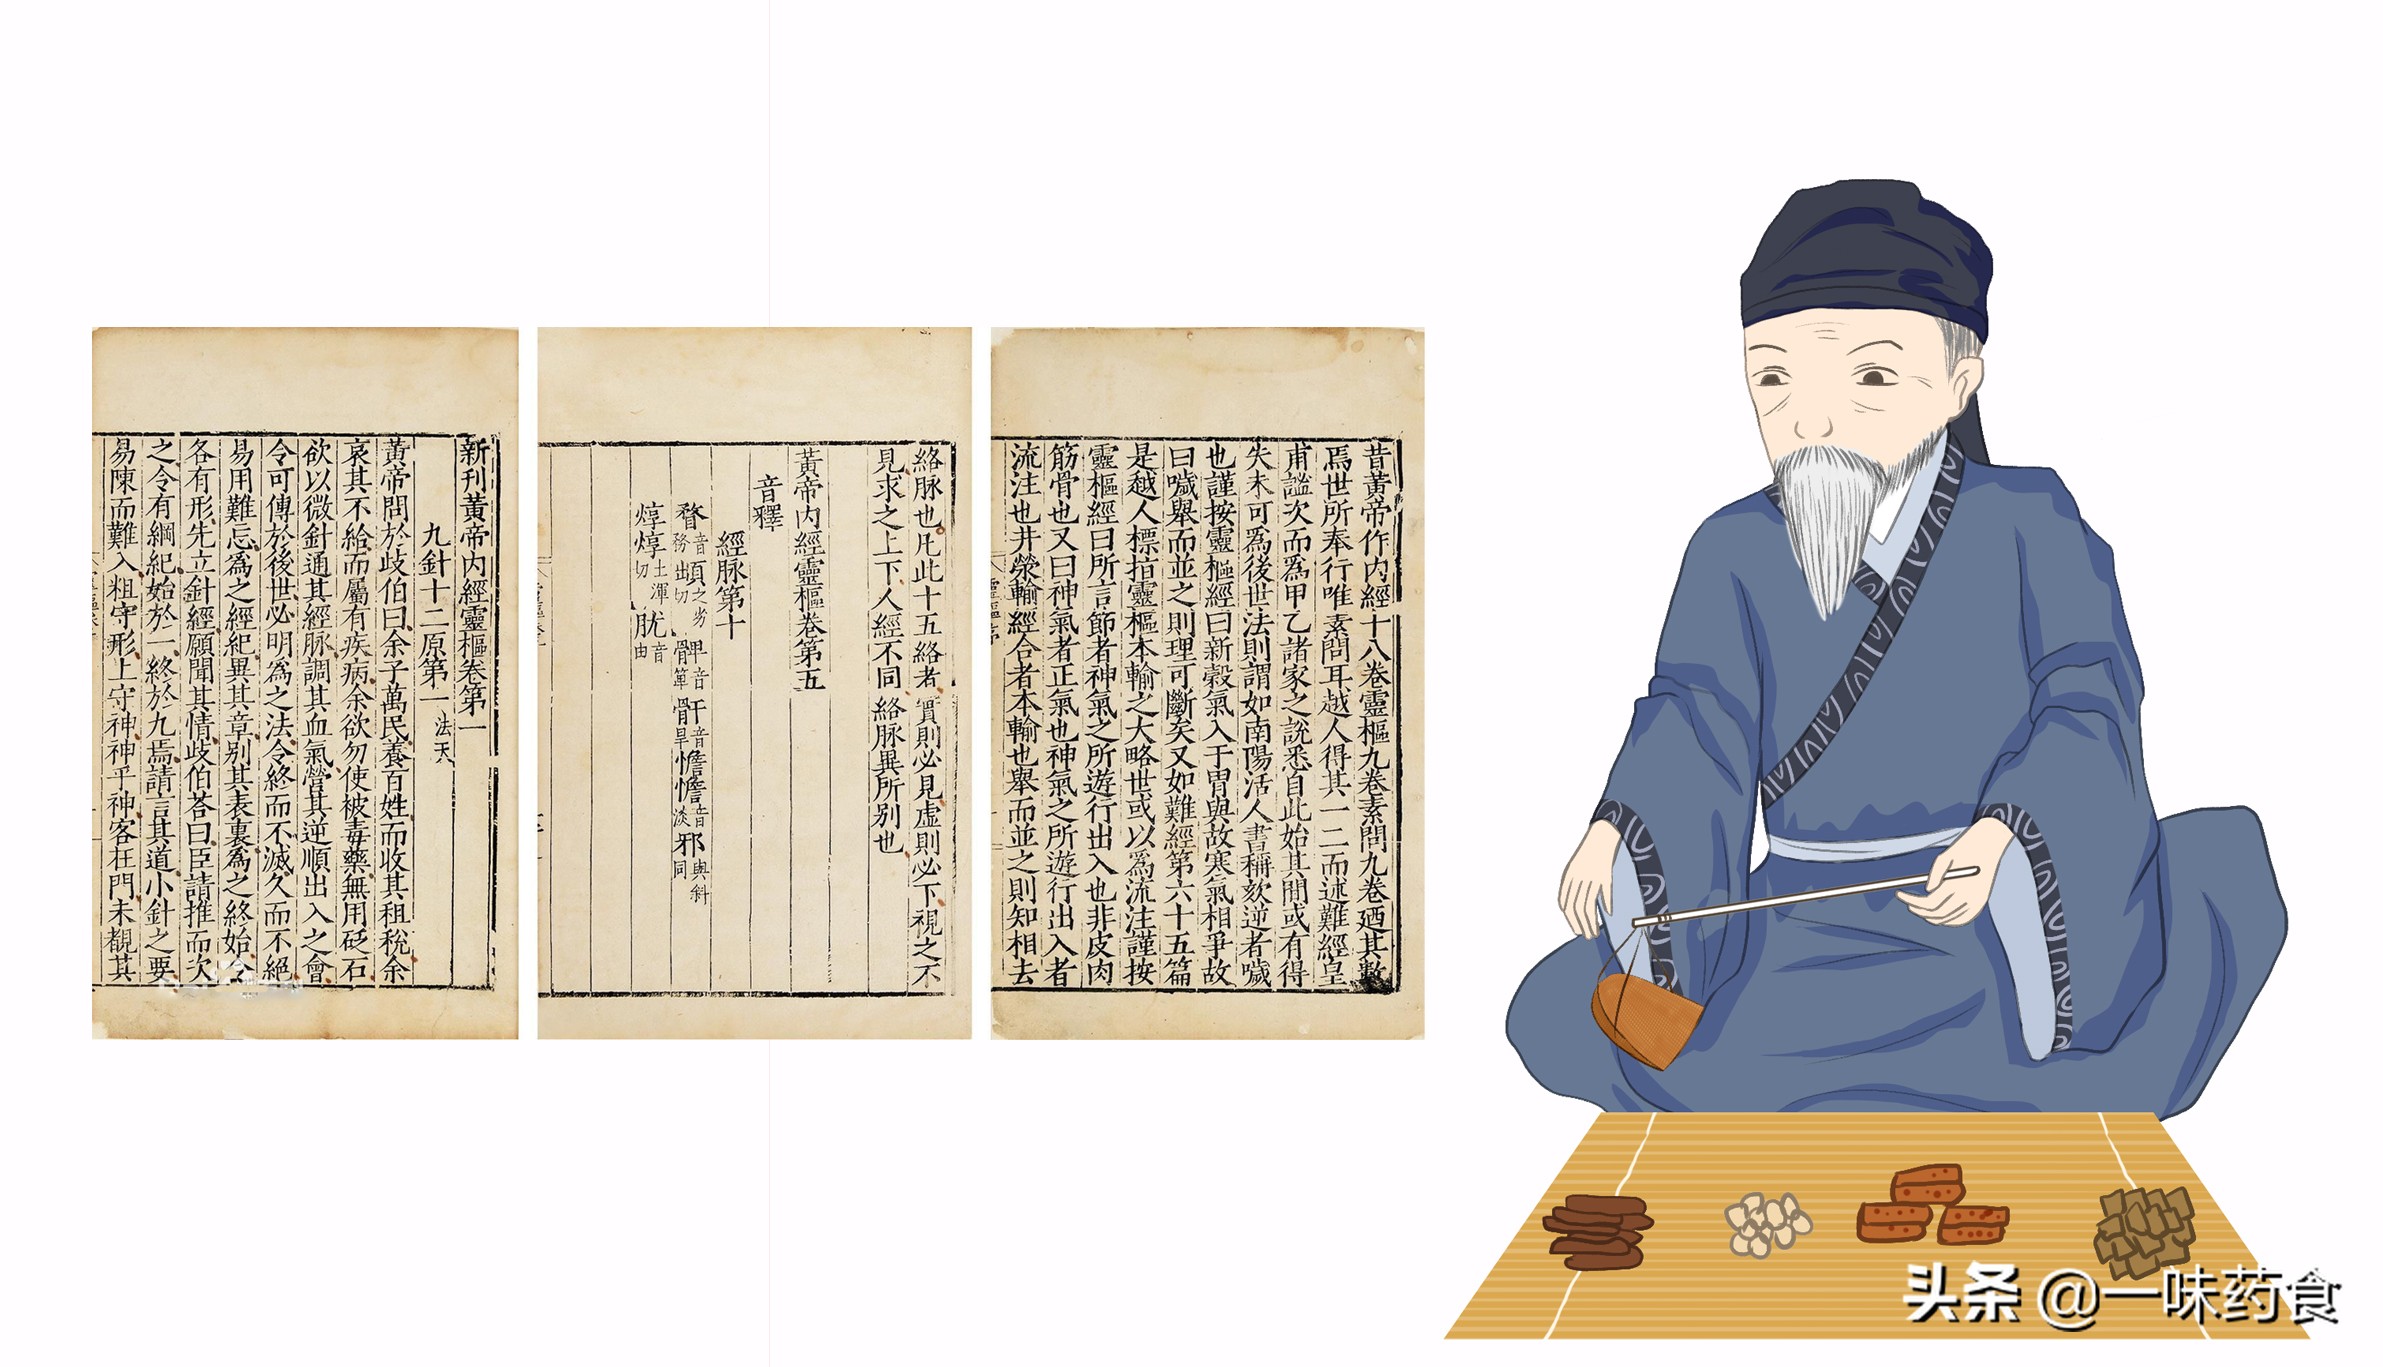 昔黃帝作內經十八卷靈樞九卷素問九卷迺其數
焉世所奉行唯素問耳越人得其一二而述難經皇
甫謐次而爲甲乙諸家之說悉自此始其間或有得
失未可爲後世法則謂如南陽活人書稱欬逆者噦
也謹按靈樞經曰新穀氣入于胃與故寒氣相爭故
曰噦舉而並之則理可斷矣又如難經第六十五篇
是越人標指靈樞本輸之大略世或以爲流注謹按
靈樞經曰所言節者神氣之所遊行出入也非皮肉
筋骨也又曰神氣者正氣也神氣之所遊行出入者
流注也井滎輸經合者本輸也舉而並之則知相去
絡脉也凡此十五絡者實則必見虛則必下視之不
見求之上下人經不同絡脉異所别也
黃帝內經靈樞卷第五
音釋
經脉第十
瞀音務 骭音旱憺憺音淡邪與斜同
焞焞土渾切肬音由
新刊黃帝內經靈樞卷第一
九針十二原第一法天
黃帝問於歧伯曰余子萬民養百姓而收其租稅余
哀其不給而屬有疾病余欲勿使被毒藥無用砭石
欲以微針通其經脉調其血氣營其逆順出入之會
令可傳於後世必明爲之法令終而不滅久而不絕
易用難忘爲之經紀異其章别其表裏爲之終始令
各有形先立針經願聞其情歧伯荅曰臣請推而次
之令有綱紀始於一終於九焉請言其道小針之要
易陳而難入粗守形上守神神乎神客在門未覩其
头条 @一味药食